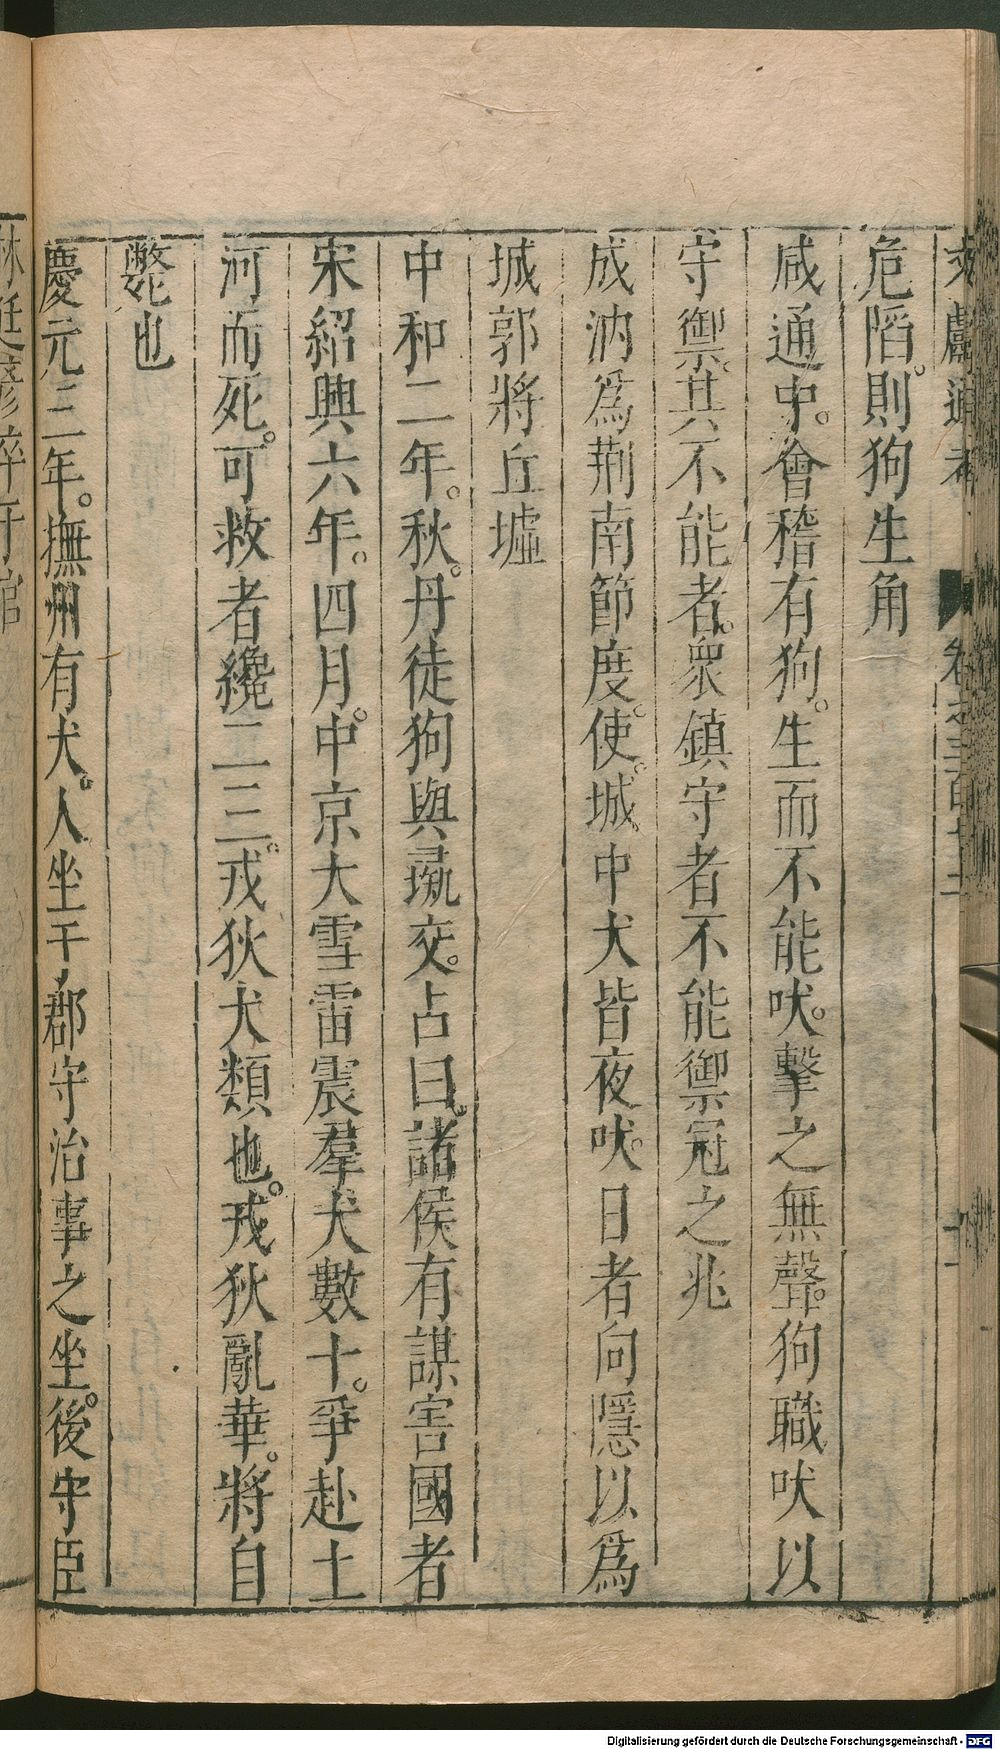 文獻通考 卷之三百十二 十一
危謟則狗生角
咸通中會稽有狗生而不能吠擊之無聲狗職吠以
守禦其不能者衆鎮守者不能禦冦之兆
成汭爲荆南節度使城中犬皆夜吠日者向隱以爲
城郭將丘墟
中和二年秋丹徒狗與彘交占曰諸侯有謀害國者
宋紹興六年四月中京大雪雷震羣犬數十爭赴土
河而死可救者纔二三戎狄犬類也戎狄亂華將自
斃也
慶元三年撫州有犬人坐于郡守治事之坐後守臣
林廷
卒于官
Digitalisierung gefördert durch die Deutsche Forschungsgemeinschaft - DFG